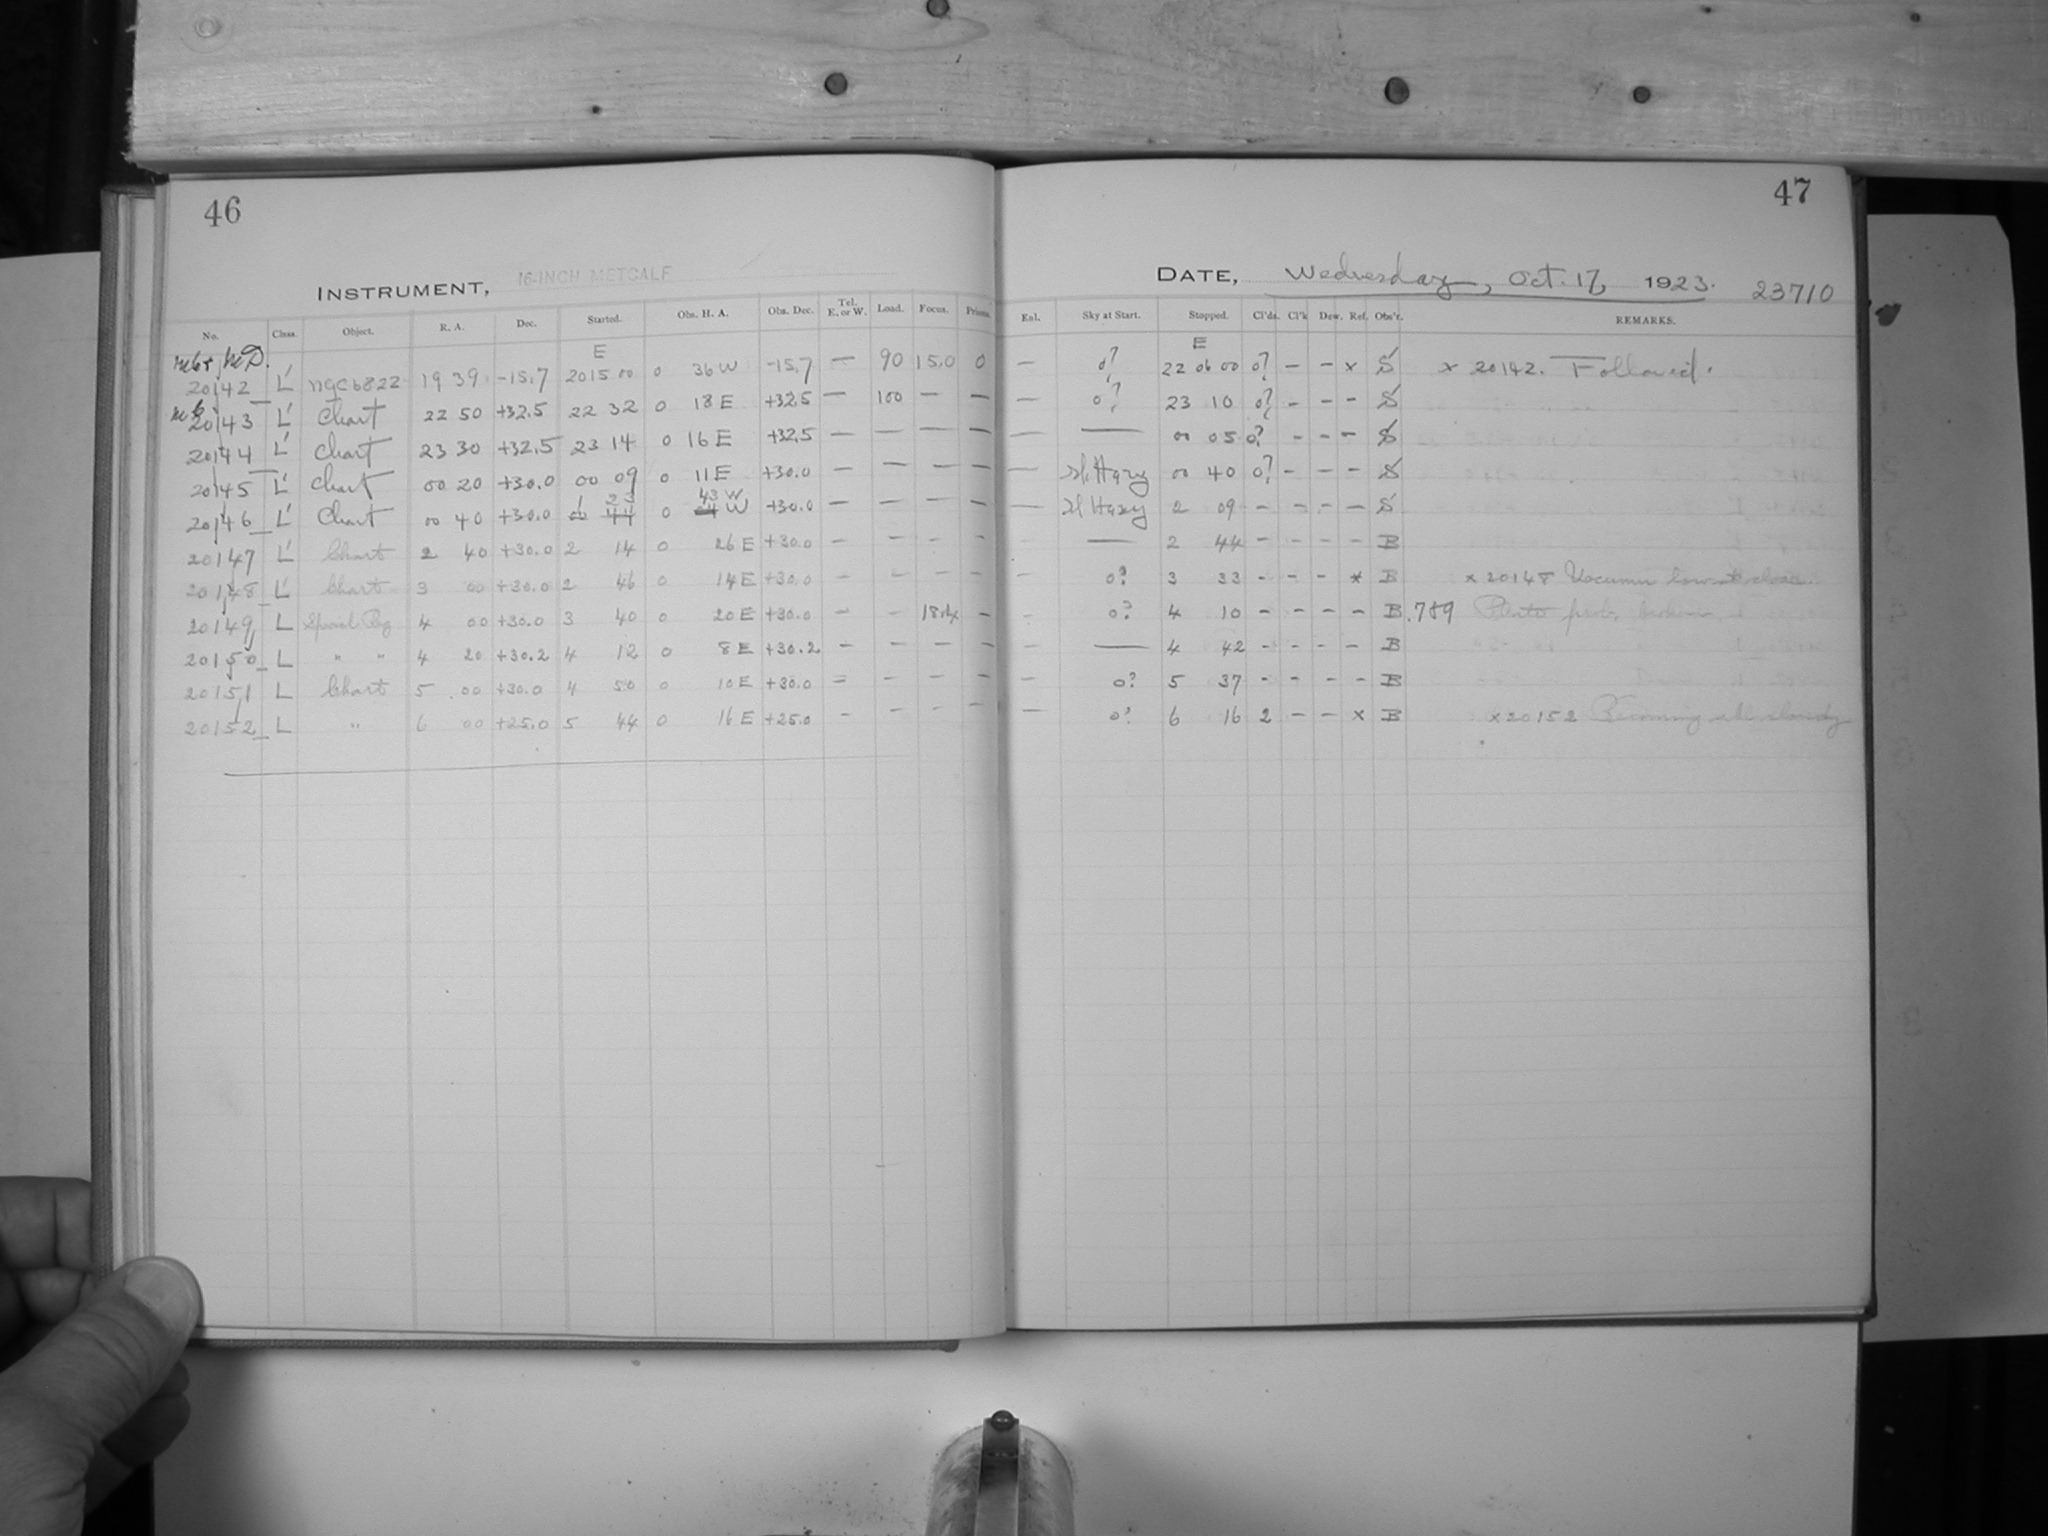 46
INSTRUMENT, 16-INCH METCALF
No. Class. Object. R. A. Dec. Started. Obs. H. A. Obs. Dec. Tel. E. or W. Load. Focus. Prisms.
E
20142 L' NGC 6822 19 39 -15.7 20 15 00 0 36 W -15.7 — 90 15.0 0
20143 L' Chart 22 50 +32.5 22 32 0 18 E +32.5 — 100 — —
20144 L' Chart 23 30 +32.5 23 14 0 16 E +32.5 — — — —
20145 L' Chart 00 20 +30.0 00 09 0 11 E +30.0 — — — —
1 23 43 W
20146 L' Chart 00 40 +30.0 00 44 0 04 W +30.0 — — — —
20147 L' Chart 2 40 +30.0 2 14 0 26 E +30.0 - - - -
20148 L' Chart 3 00 +30.0 2 46 0 14 E +30.0 - - - -
20149 L Special Reg 4 00 +30.0 3 40 0 20 E +30.0 - - 18.4 -
20150 L " " 4 20 +30.2 4 12 0 8 E +30.2 - - - -
20151 L Chart 5 00 +30.0 4 50 0 10 E +30.0 = - - -
20152 L " 6 00 +25.0 5 44 0 16 E +25.0 - - - -
47
DATE, Wednesday, Oct. 17, 1923. 23710
Enl. Sky at Start. Stopped. Cl'ds. Cl'k Dew. Ref. Obs'r. REMARKS.
E
— 0? 22 06 00 0? - - x S x 20142. Followed.
— 0? 23 10 0? - - - S
— — 00 05 0? - - - S
— Sl. Hazy 00 40 0? - - - S
— Sl Hazy 2 09 - - - - S
- — 2 44 - - - - B
- 0? 3 33 - - - * B x 20148 Vacuum low at close.
- 0? 4 10 - - - - B .789 Plate prob. broken
- — 4 42 - - - - B
- 0? 5 37 - - - - B
— 0? 6 16 2 - - x B x 20152 Becoming all cloudy